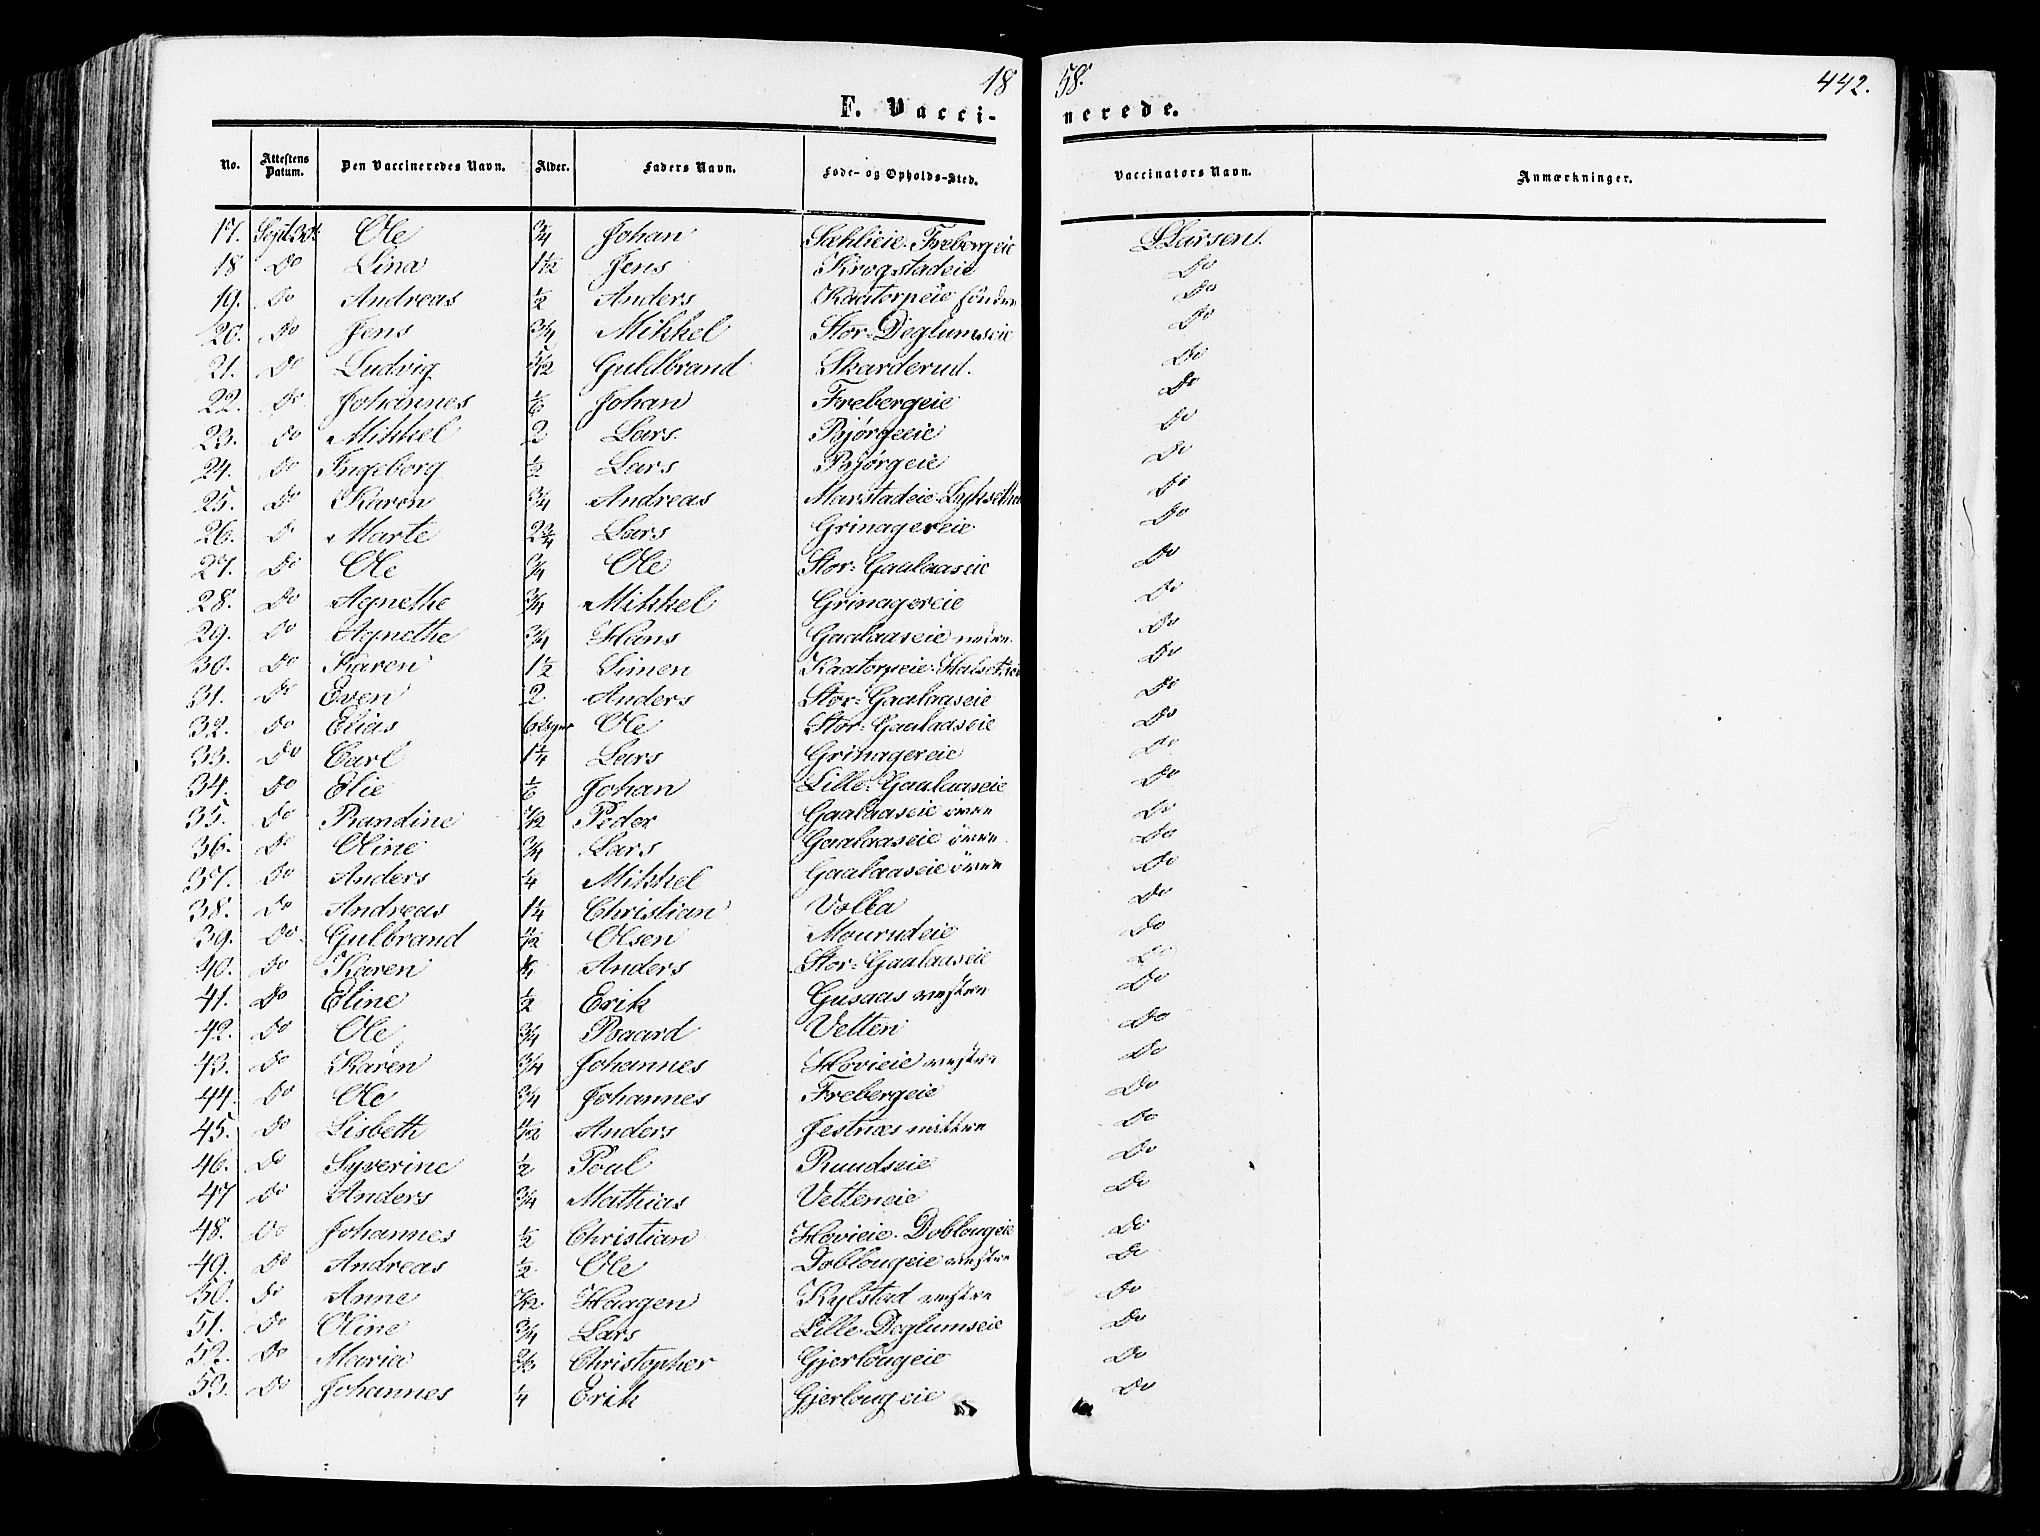 1858. 442.
F. Vaccinerede.
No. Attestens Datum. Den Vaccineredes Navn. Alder. Faders Navn. Føde- og Opholds-Sted. Vaccinators Navn. Anmærkninger.
17. Ole 3/4 Johan Frebergeie Larsen.
18 Do Lina 1 1/2 Jens Krogstadeie Do
19. Do Andreas 1/2 Anders Kaatorpeie søndre Do
20. Do Jens 3/4 Mikkel Stor-Deglumseie Do
21. Do Ludvig 5/12 Guldbrand Skarderud. Do
22. Do Johannes 1/6 Johan Frebergeie Do
23. Do Mikkel 2 Lars. Bjørgeeie Do
24. Do Ingeborg 1/2 Lars Bjørgeie Do
25. Do Karen 3/4 Andreas Marstadeie Do
26. D Marte 2 3/4 Lars Grinagereie Do
27. Do Ole 3/4 Ole Stor-Gaalaaseie Do
28. Do Agnethe 3/4 Mikkel Grinagereie Do
29. Do Agnethe 3/4 Hans Gaalaaseie nedre. Do
30. Do Karen 1 1/2 Simen Kaatorpeie Do
31. Do Even 2 Anders Stor-Gaalaaseie Do
32. Do Elias Ole Stor-Gaalaaseie Do
33. Do Carl 1 1/4 Lars Grinagereie Do
34. Do Elie 1/6 Johan Lille-Gaalaaseie Do
35. Do Randine 7/12 Peder Gaalaaseie övre Do
36. Do Oline 3/4 Lars Gaalaaseie övre Do
37. Do Anders 1/4 Mikkel Gaalaaseie övre Do
38. Do Andreas 1 1/4 Christian Volla Do
39. Do Gulbrand Olsen Mourudeie Do
40. Do Karen Anders Stor-Gaalaaseie Do
41. Do Eline 1/2 Erik Gusaas vestre Do
42. Do Ole 3/4 Baard Vetten Do
43. Do Karen 3/4 Johannes Hovieie vestre Do
44. Do Ole 3/4 Johannes Frebergeie Do
45. Do Lisbeth Anders Jestnæs mittre Do
46. Do Syverine 1/2 Poul Ruudseie Do
47 Do Anders 3/4 Mathias Vetteneie Do
48. Do Johannes 1/2 Christian Hovieie. Doblougeie Do
49. Do Andreas 1/2 Ole Doblougeie vestre Do
50. Do Anne 7/12 Haagen Kylstad vestre Do
51. Do Oline 3/4 Lars Lille-Deglumseie Do
52. Do Maria 2/3 Christopher Gjerlougeie Do
53. Do Johannes 1/4 Erik Gjerlougeie Do